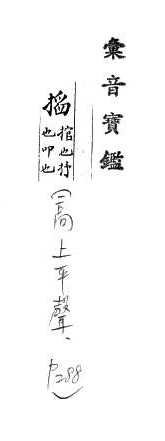 彙音寶鑑
搯
捾也抒
也叩也
(高上平聲、P288)